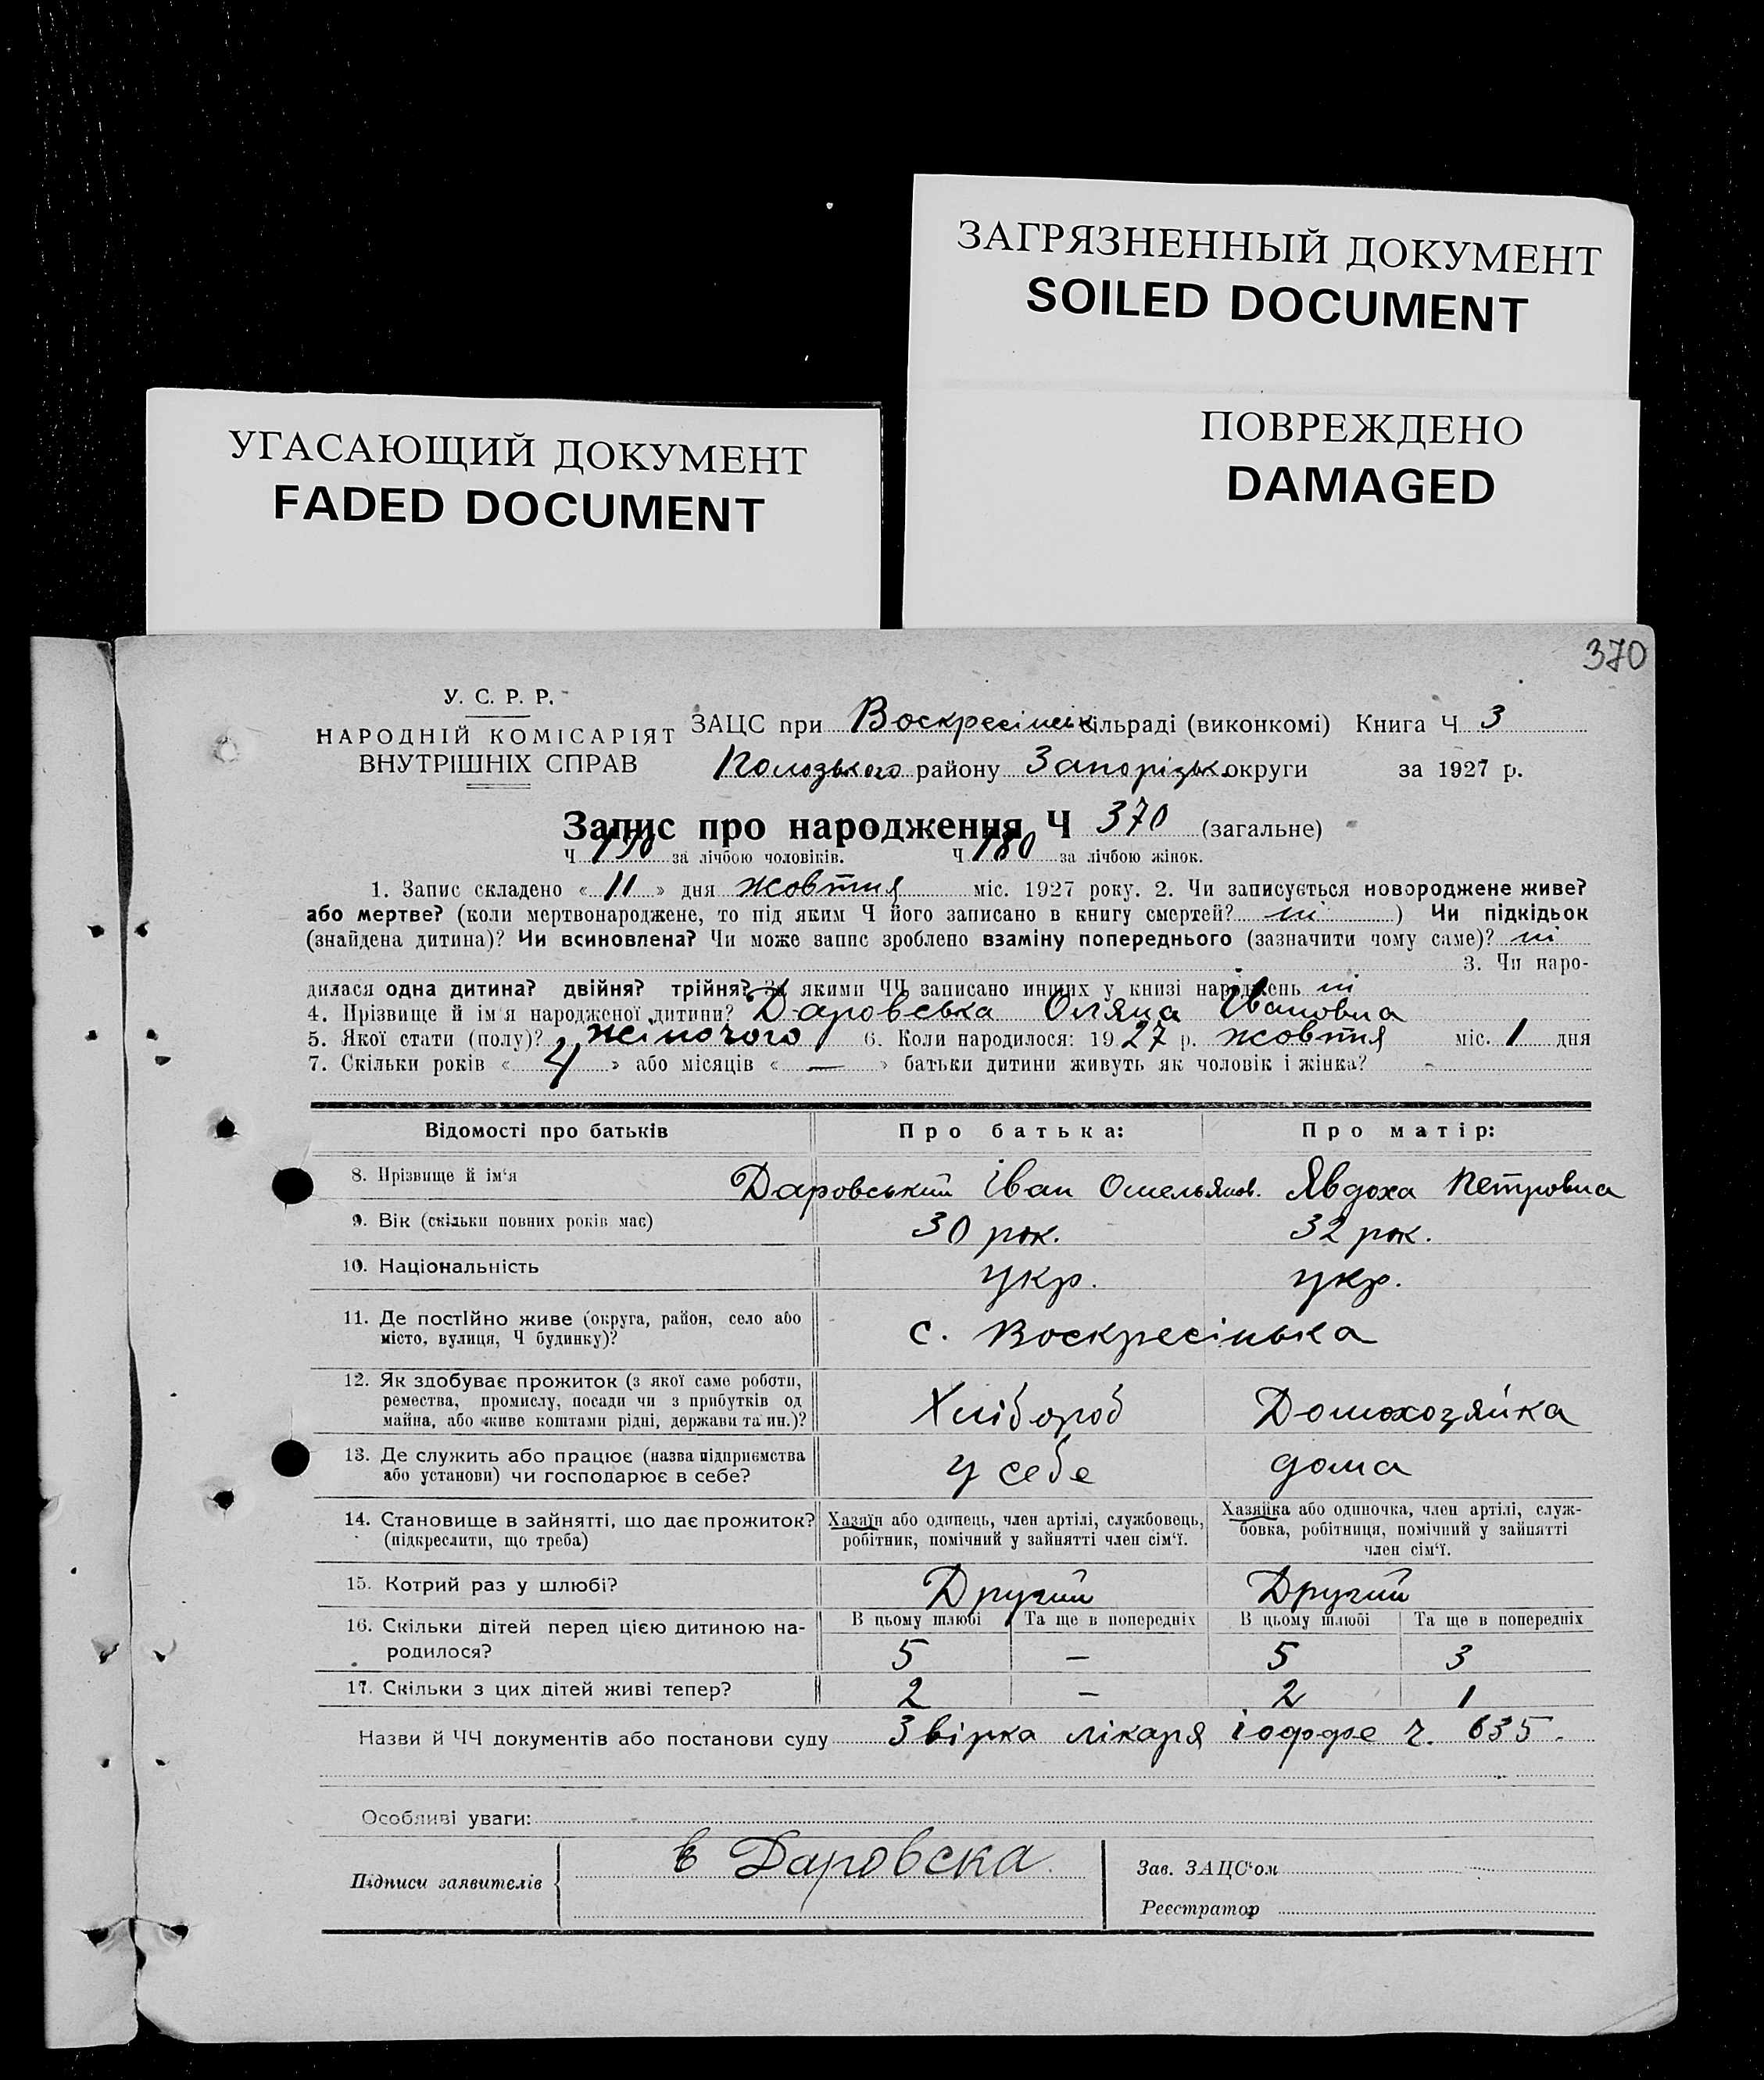 ЗАГРЯЗНЕННЫЙ ДОКУМЕНТ
SOILED DOCUMENT
УГАСАЮЩИЙ ДОКУМЕНТ
FADED DOCUMENT
ПОВРЕЖДЕНО
DAMAGED
370
У. С. Р. Р.
НАРОДНІЙ КОМІСАРІЯТ
ВНУТРІШНІХ СПРАВ
ЗАЦС при Воскресінськ сільраді (виконкомі) Книга Ч 3
району Запорізьк. округи за 1927 р.
Запис про народження Ч 370 (загальне)
Ч 190 за лічбою чоловіків. Ч 180 за лічбою жінок.
1. Запис складено « 11 » дня жовтня міс. 1927 року. 2. Чи записується новороджене живе?
або мертве? (коли мертвонароджене, то під яким Ч його записано в книгу смертей? ні ) Чи підкідьок
(знайдена дитина)? Чи всиновлена? Чи може запис зроблено взаміну попереднього (зазначити чому саме)? ні
3. Чи наро-
дилася одна дитина? двійня? трійня? За якими ЧЧ записано инших у книзі народжень ні
4. Прізвище й ім'я народженої дитини? Даровська Оляна Івановна
5. Якої стати (полу)? жіночого 6. Коли народилося: 1927 р. жовтня міс. 1 дня
7. Скільки років « 4 » або місяців « — » батьки дитини живуть як чоловік і жінка?
Відомості про батьків Про батька: Про матір:
8. Прізвище й ім'я Даровський Іван Омельянов. Явдоха Петровна
9. Вік (скільки повних років має) 30 рок. 32 рок.
10. Національність укр. укр.
11. Де постійно живе (округа, район, село або
місто, вулиця, Ч будинку)? с. Воскресінька
12. Як здобуває прожиток (з якої саме роботи,
ремества, промислу, посади чи з прибутків од
майна, або живе коштами рідні, держави та ин.)? Хлібороб Домохозяйка
13. Де служить або працює (назва підприємства
або установи) чи господарює в себе? у себе дома
14. Становище в зайнятті, що дає прожиток?
(підкреслити, що треба)
Хазяїн або одинець, член артілі, службовець,
робітник, помічний у зайнятті член сім'ї.
Хазяйка або одиночка, член артілі, служ-
бовка, робітниця, помічний у зайнятті
член сім'ї.
15. Котрий раз у шлюбі? Другий Другий
16. Скільки дітей перед цією дитиною на-
родилося?
В цьому шлюбі Та ще в попередніх В цьому шлюбі Та ще в попередніх
5 — 5 3
17. Скільки з цих дітей живі тепер? 2 — 2 1
Назви й ЧЧ документів або постанови суду Звірка лікаря Іоффе ч. 635.
Особливі уваги:
Підписи заявителів Є Даровска
Зав. ЗАЦС'ом
Реєстратор